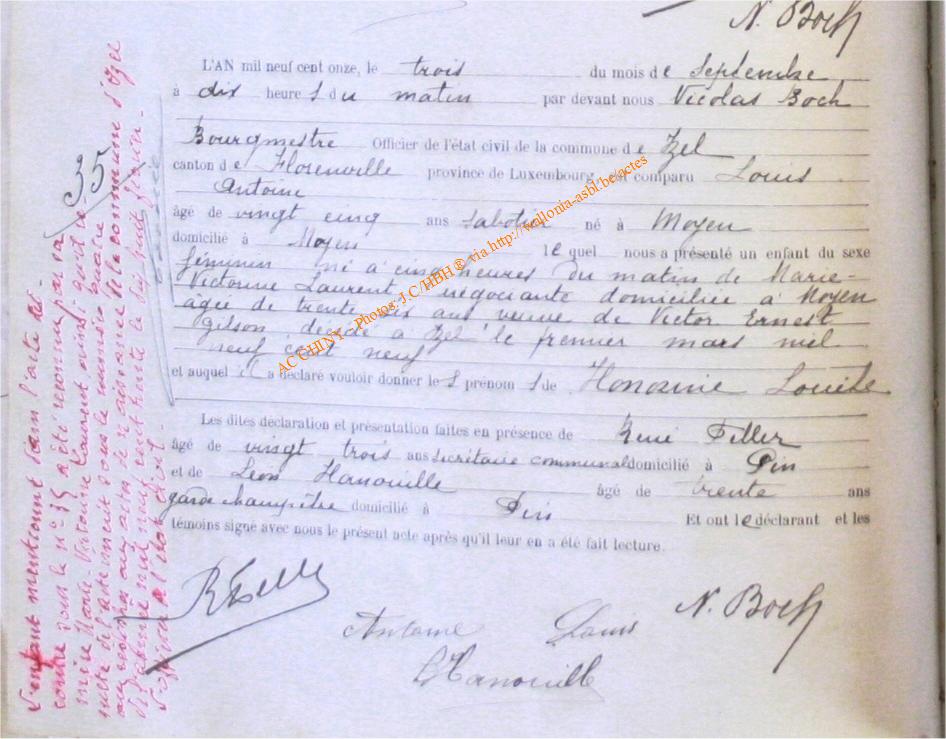 N. Boch
L'AN mil neuf cent onze, le trois du mois de Septembre
à dix heures du matin par devant nous Nicolas Boch
Bourgmestre Officier de l'état civil de la commune de Izel
canton de Florenville province de Luxembourg, est comparu Louis
Antoine
âgé de vingt cinq ans sabotier né à Moyen
domicilié à Moyen lequel nous a présenté un enfant du sexe
féminin né à cinq heures du matin de Marie-
Victorine Laurent négociante domiciliée à Moyen
âgée de trente ans veuve de Victor Ernest
Gilson décédé à Izel le premier mars mil
neuf cent neuf
et auquel il a déclaré vouloir donner les prénoms de Honorine Louise
Les dites déclaration et présentation faites en présence de René Feller
âgé de vingt trois ans secrétaire communal domicilié à Pin
et de Léon Hanouille âgé de trente ans
garde champêtre domicilié à Pin Et ont le déclarant et les
témoins signé avec nous le présent acte après qu'il leur en a été fait lecture.
R Feller
N. Boch
Antoine Louis
L Hanouille
35
L'enfant mentionné dans l'acte ci-
contre sous le n° 35 a été reconnu par sa
mère Marie-Victorine Laurent ainsi qu'il ré-
sulte de l'acte inscrit sous le numéro
aux registres aux actes de naissance de la commune d'Izel
l'année mil neuf cent
L'officier de l'état civil.
AC CHINY - Photos: J.C/HBH® via http://wallonia-asbl.be/actes